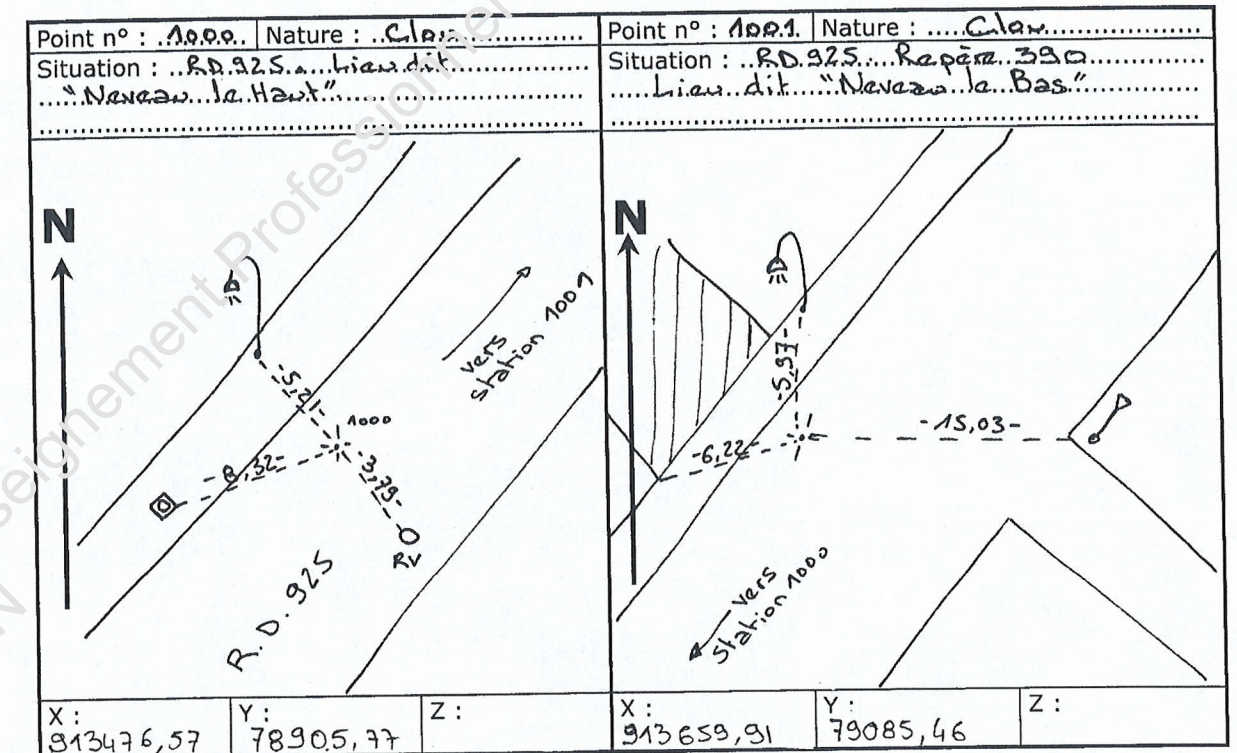 Point n° : 1000 Nature : Clou
Situation : RD.925 Lieu dit
"Neveau le Haut"
N
5,21
1000
8,32
3,79
RV
R.D.925
vers
station 1001
X :
913476,57
Y :
78905,77
Z :
Point n° : 1001 Nature : Clou
Situation : RD.925 Repère 390
Lieu dit "Neveau le Bas"
N
5,97
6,22
15,03
vers
station 1000
X :
913659,91
Y :
79085,46
Z :
seignement Professionne